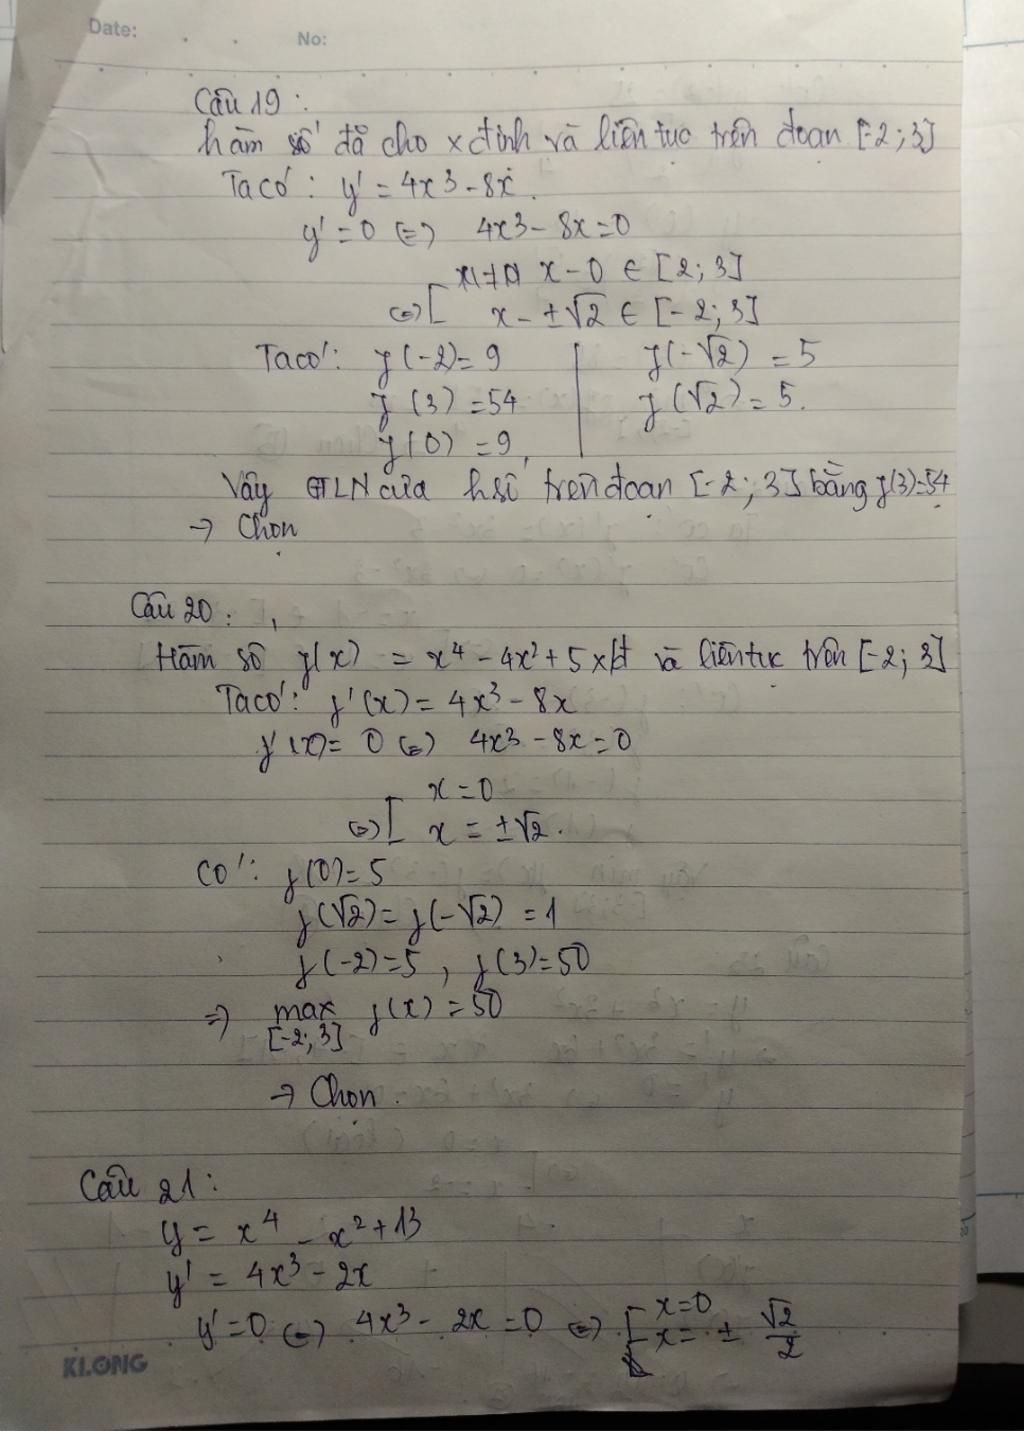 Date:
No:
Câu 19:
hàm số đã cho xđịnh và liên tục trên đoạn [-2; 3]
Ta có: y' = 4x³ - 8x.
y' = 0 (=) 4x³ - 8x = 0
x - 0 ∈ [2; 3]
(=) [ x - ±√2 ∈ [-2; 3]
Ta có: y(-2) = 9 | y(-√2) = 5
y(3) = 54 | y(√2) = 5.
y(0) = 9,
Vậy GTLN của h.số trên đoạn [-2; 3] bằng y(3)=54
→ Chọn
Câu 20:
Hàm số y(x) = x⁴ - 4x² + 5 xđ và liên tục trên [-2; 3]
Ta có: y'(x) = 4x³ - 8x
y'(x) = 0 (=) 4x³ - 8x = 0
x = 0
(=) [ x = ±√2.
Có: y(0) = 5
y(√2) = y(-√2) = 1
y(-2) = 5, y(3) = 50
=) max y(x) = 50
[-2; 3]
→ Chọn.
Câu 21:
y = x⁴ - x² + 13
y' = 4x³ - 2x
y' = 0 (=) 4x³ - 2x = 0 (=) [ x = 0
x = ± √2/2
KLONG